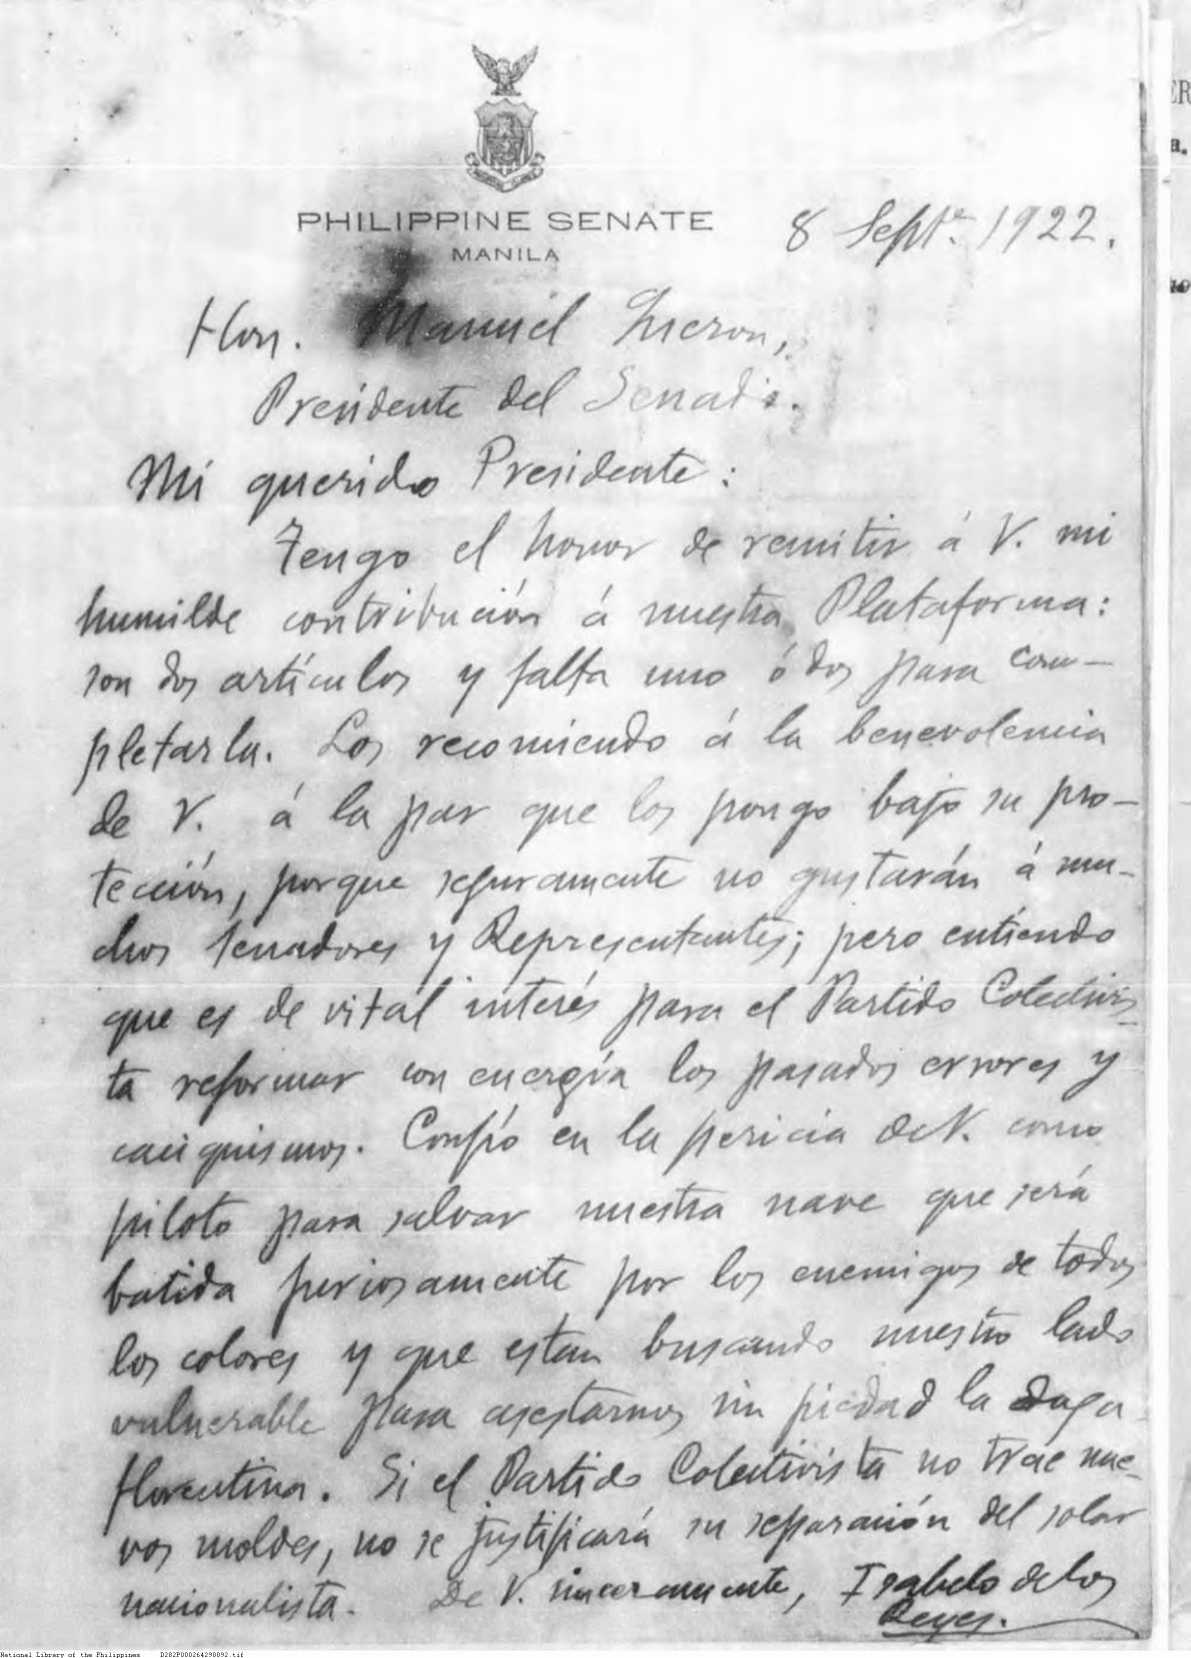 PHILIPPINE SENATE
MANILA
8 Sept.e 1922.
Hon. Manuel Quezon,
Presidente del Senado.
Mi querido Presidente:
Tengo el honor de remitir á V. mi
humilde contribución á nuestra Plataforma:
son dos artículos y falta uno ó dos para com-
pletarla. Los recomiendo á la benevolencia
de V. á la par que los pongo bajo su pro-
tección, porque seguramente no gustarán á mu-
chos Senadores y Representantes; pero entiendo
que es de vital interés para el Partido Colectivis-
ta reformar con energía los pasados errores y
caciquismos. Confío en la pericia de V. como
piloto para salvar nuestra nave que será
batida furiosamente por los enemigos de todos
los colores y que estan buscando nuestro lado
vulnerable para asestarnos sin piedad la daga
florentina. Si el Partido Colectivista no trae nue-
vos moldes, no se justificará su separación del solar
nacionalista. De V. sinceramente, Isabelo de los
Reyes.
ER
a.
National Library of the Philippines D282P000264298092.tif